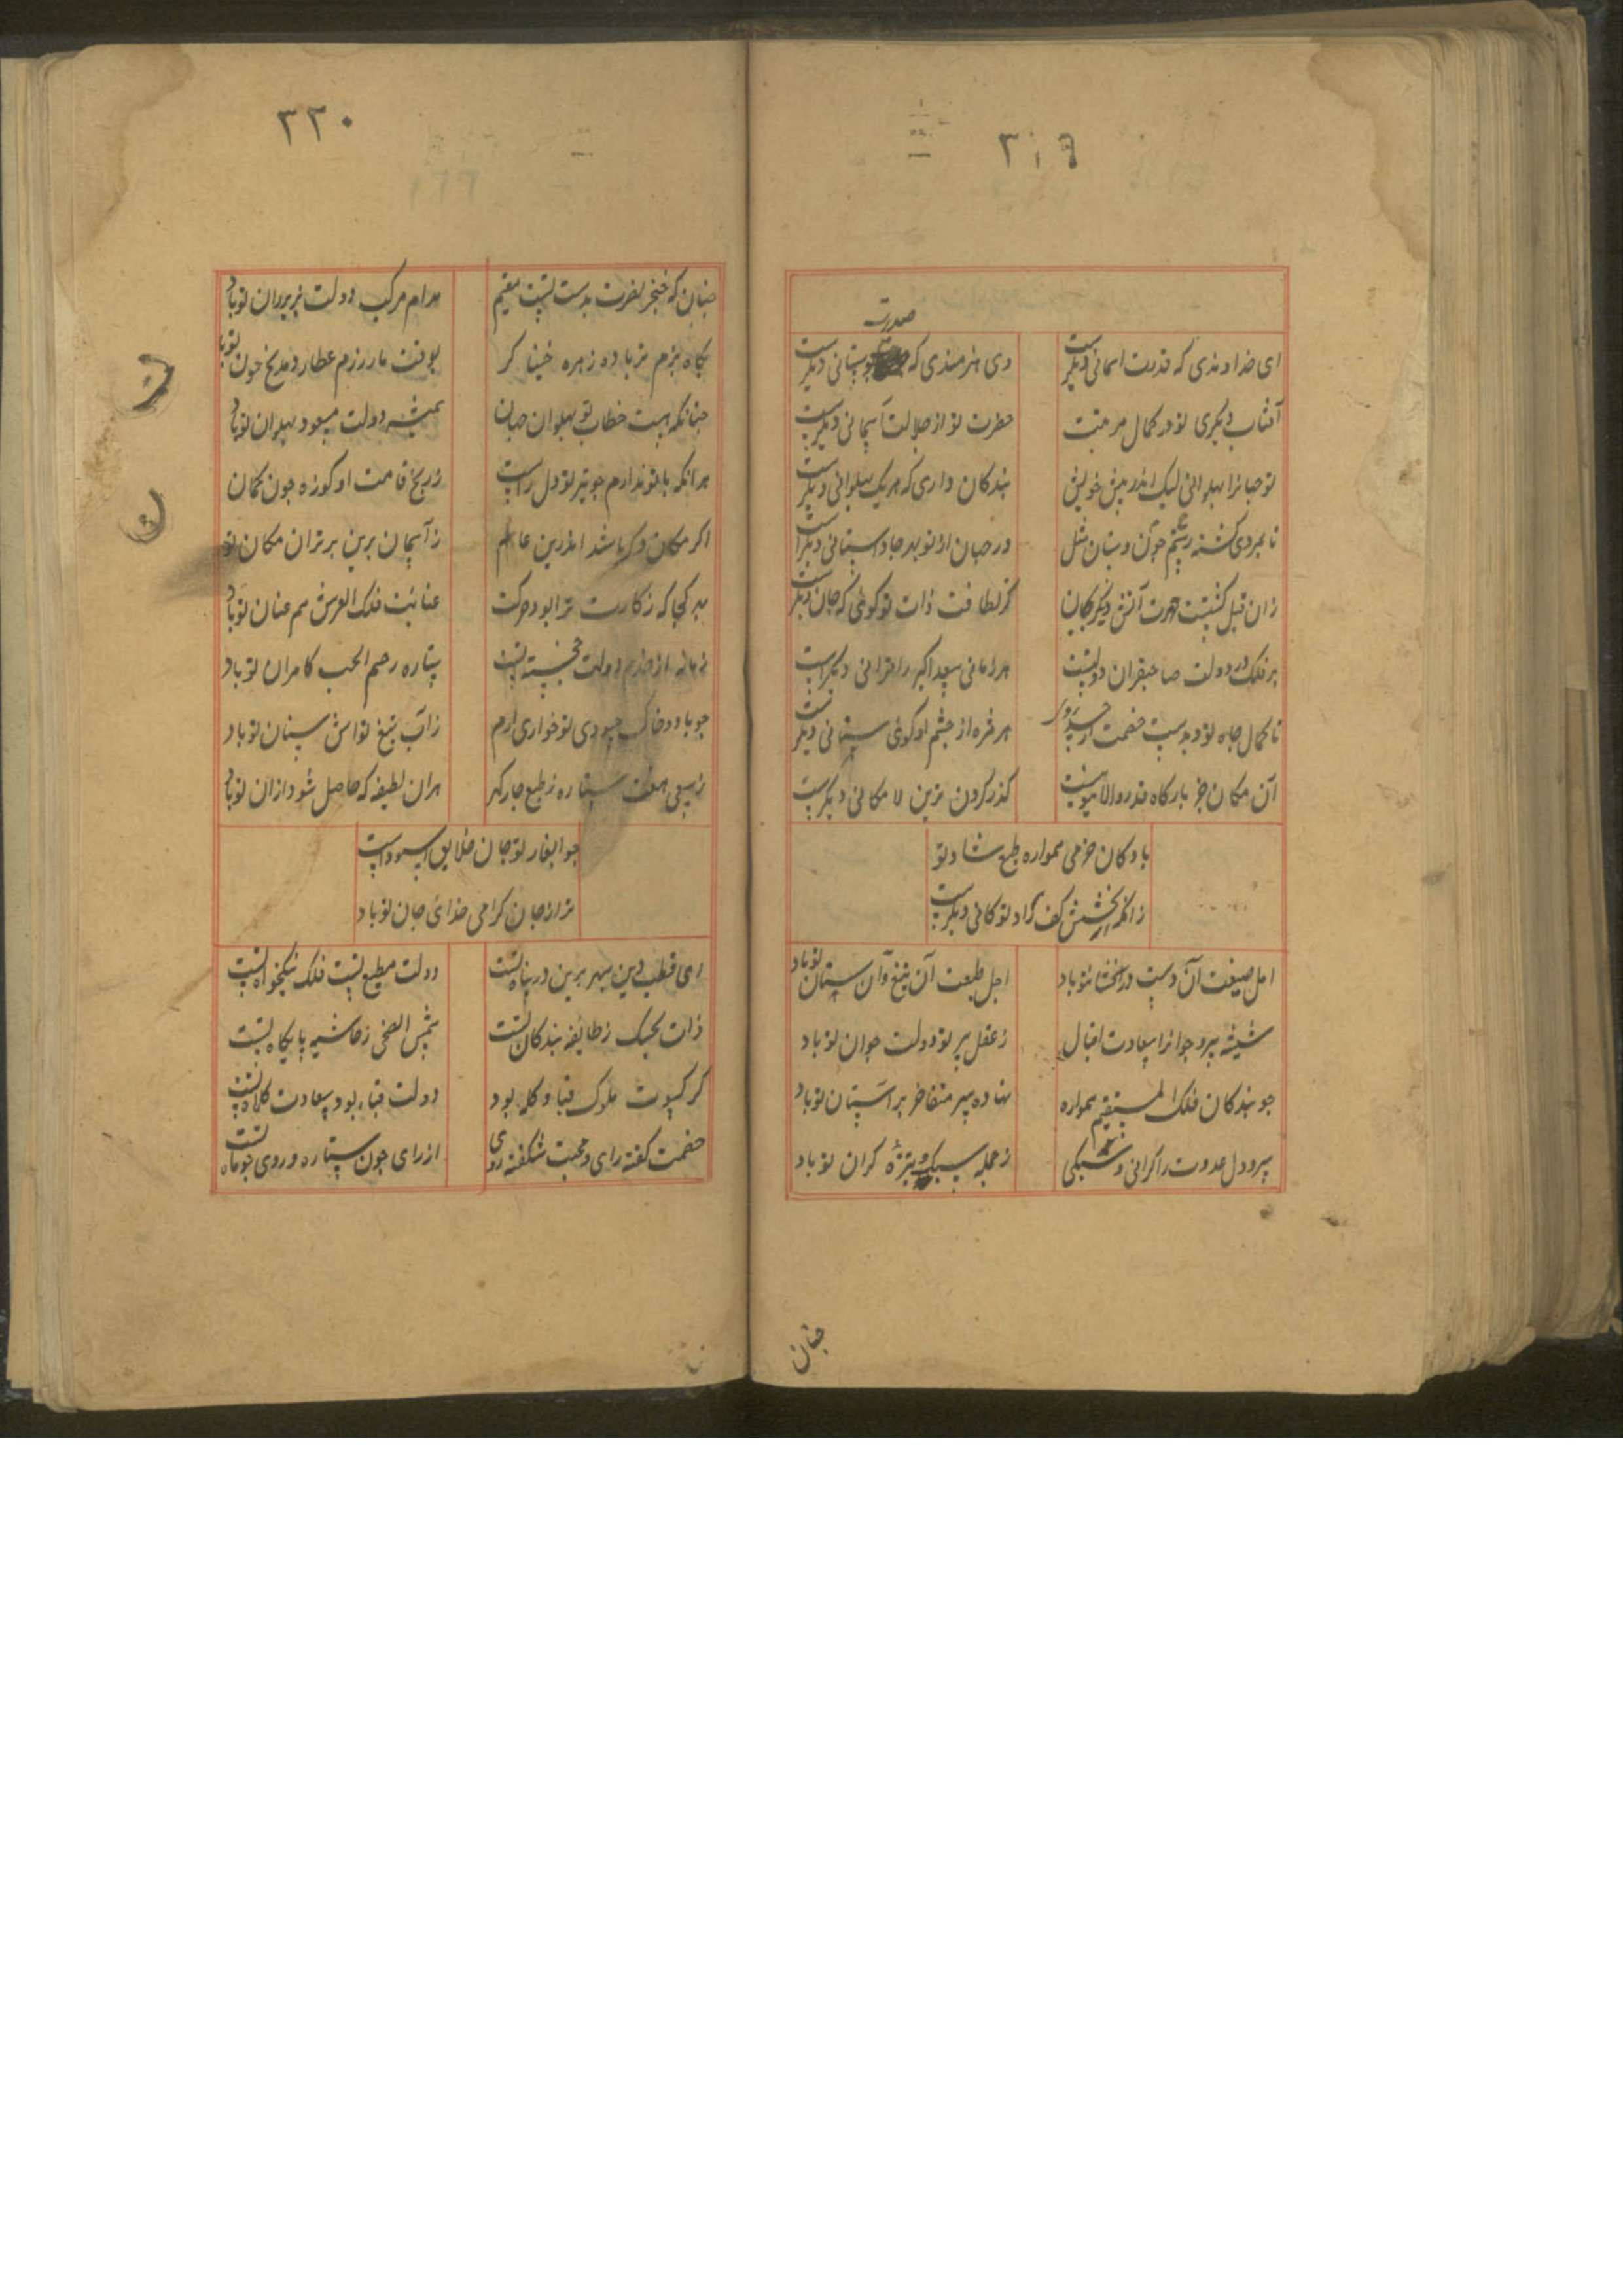 ۳۱۹
صدرت
ای خداوندی که قدرت اسمانی دیکرست
وی هنرمندی که چو بستانی دیکرست
آفتاب دیکری تو در کمال مرتبت
حضرت تو از جلالت آسمانی دیکرست
تو جهانرا پهلوانی لیک اندر پیش خویش
بندکان داری که هر یک پهلوانی دیکرست
تا بمردی کشته رستم چون دستان مثل
در جهان از تو بهر جا داستانی دیکرست
زان قبل کشتت آتش دیکر بجان
کز لطافت ذات تو کوئی که جان دیکرست
بر فلک در دولت صاحبقران دولتت
هر زمانی سعد اکبر را قرانی دیکرست
تا کمال جاه تو دیدست خصمت از حسد
هر مژه از چشم او کوئی سنانی دیکرست
آن مکان جز بارکاه قدر والا تو نیست
کذر کردون برین لا مکانی دیکرست
باد کان خرمی همواره طبع شاد تو
زانکه از بخشش کف راد تو کانی دیکرست
امل صیغت آن دست در افشان تو باد
اجل طبیعت آن تیغ و آن سنان تو باد
پیر و جوانرا سعادت اقبال
ز عقل پیر تو دولت جوان تو باد
چو بندکان فلک المستقیم همواره
نهاده سر متفاخر بر آستان تو باد
سر و دل عدوت را کرانی و سبکی
ز حمله سبک و نیزه کران تو باد
چنان
۳۲۰
چنان که خنجر نصرت بدست تست مقیم
مدام مرکب دولت بزیر ران تو باد
بکاه بزم بر باده زهره خنیا کر
بوقت رزم عطارد مدیح خوان تو باد
چنانکه هست خطاب تو پهلوان جهان
همیشه دولت مسعود پهلوان تو باد
هر انکه با تو ندارم چو تیر تو دل راست
ز رنج قامت او کوزه چون کمان
اکر مکان دکر باشد اندرین عالم
ز آسمان برین برتران مکان تو
بهر کجا که رکابت ترا بود حرکت
عنایت فلک العرش هم عنان تو باد
زمانه از خدم دولت خجسته تست
ستاره کامران تو باد
چو باد و خاک تو خواری ارم
ز آب تیغ تو اتش سنان تو باد
ز سعی هفت ستاره ز طبع چار کهر
هران لطیفه که حاصل شود ازان تو باد
چو ابغار تو جان خلایق اسودست
هزار جان کرامی فدای جان تو باد
ای قطب دین سپهر برین در پناه تست
دولت مطیع تست فلک نیکخواه تست
ذات ز طایفه بندکان تست
شمس الضحی ز حاشیه پایکاه تست
کر کسوت ملوک قبا و کله بود
دولت قباء بود سعادت کلاه تست
خصمت کفته رای و محبت شکفته روی
از رای چون ستاره و روی چو ماه تست